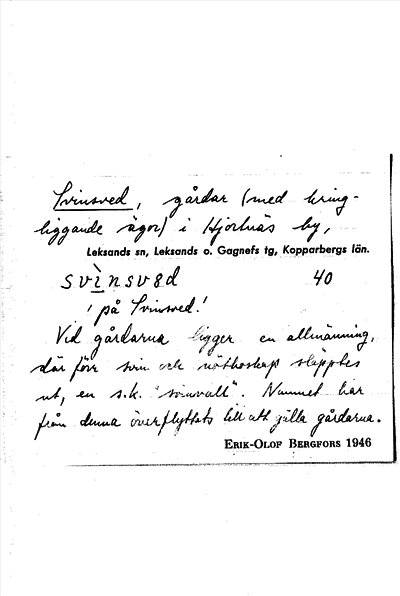 Svinsved, gårdar (med kring-
liggande ägor) i Hjortnäs by,
Leksands sn, Leksands o. Gagnefs tg, Kopparbergs län.
svìnsvɛd 40
'på Svinsved'
Vid gårdarna ligger en allmänning,
där förr svin och nötboskap släpptes
ut, en s.k. "svinvall". Namnet har
från denna överflyttats till att gälla gårdarna.
ERIK-OLOF BERGFORS 1946